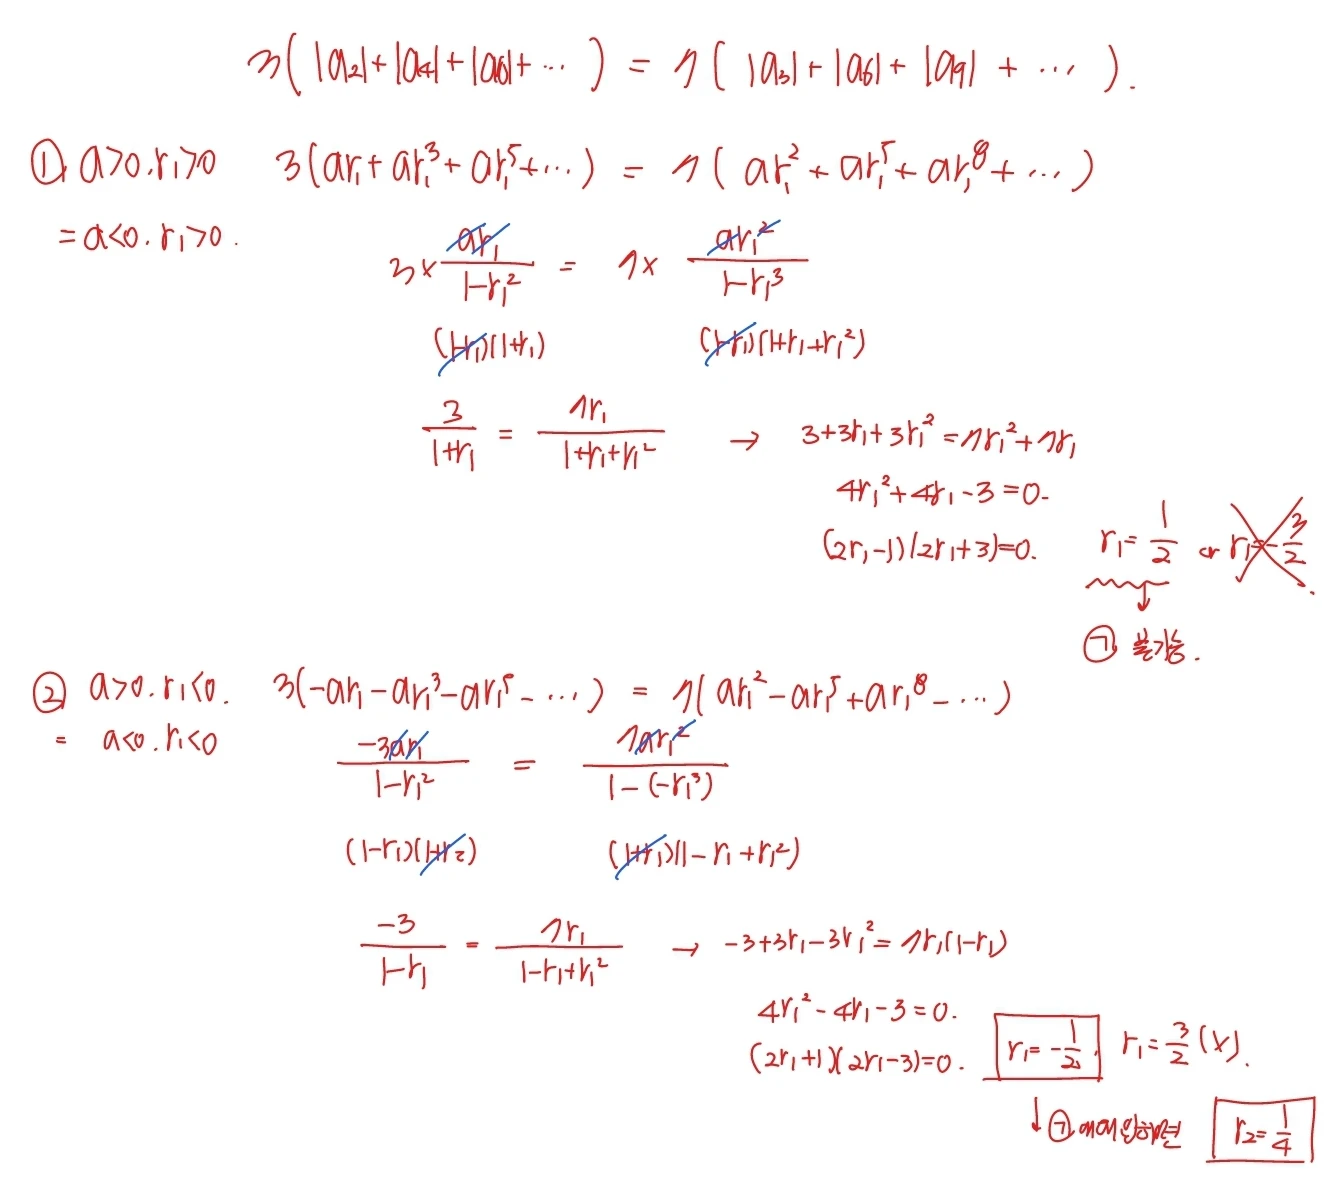 3(|a₂|+|a₄|+|a₆|+⋯) = 7(|a₃|+|a₆|+|a₉|+⋯).
① a>0. r₁>0 3(ar₁+ar₁³+ar₁⁵+⋯) = 7(ar₁²+ar₁⁵+ar₁⁸+⋯)
= a<0. r₁>0.
3× ar₁/(1-r₁²) = 7× ar₁²/(1-r₁³)
(1-r₁)(1+r₁) (1-r₁)(1+r₁+r₁²)
3/(1+r₁) = 7r₁/(1+r₁+r₁²) → 3+3r₁+3r₁²=7r₁²+7r₁
4r₁²+4r₁-3=0.
(2r₁-1)(2r₁+3)=0. r₁=1/2 or r₁=-3/2.
↓
㉠ 불가능.
② a>0. r₁<0. 3(-ar₁-ar₁³-ar₁⁵-⋯) = 7(ar₁²-ar₁⁵+ar₁⁸-⋯)
= a<0. r₁<0
-3ar₁/(1-r₁²) = 7ar₁²/(1-(-r₁³))
(1-r₁)(1+r₂) (1+r₁)(1-r₁+r₁²)
-3/(1-r₁) = 7r₁/(1-r₁+r₁²) → -3+3r₁-3r₁²=7r₁(1-r₁)
4r₁²-4r₁-3=0.
(2r₁+1)(2r₁-3)=0. r₁=-1/2. r₁=3/2(×).
↓ ㉠ r₂=1/4